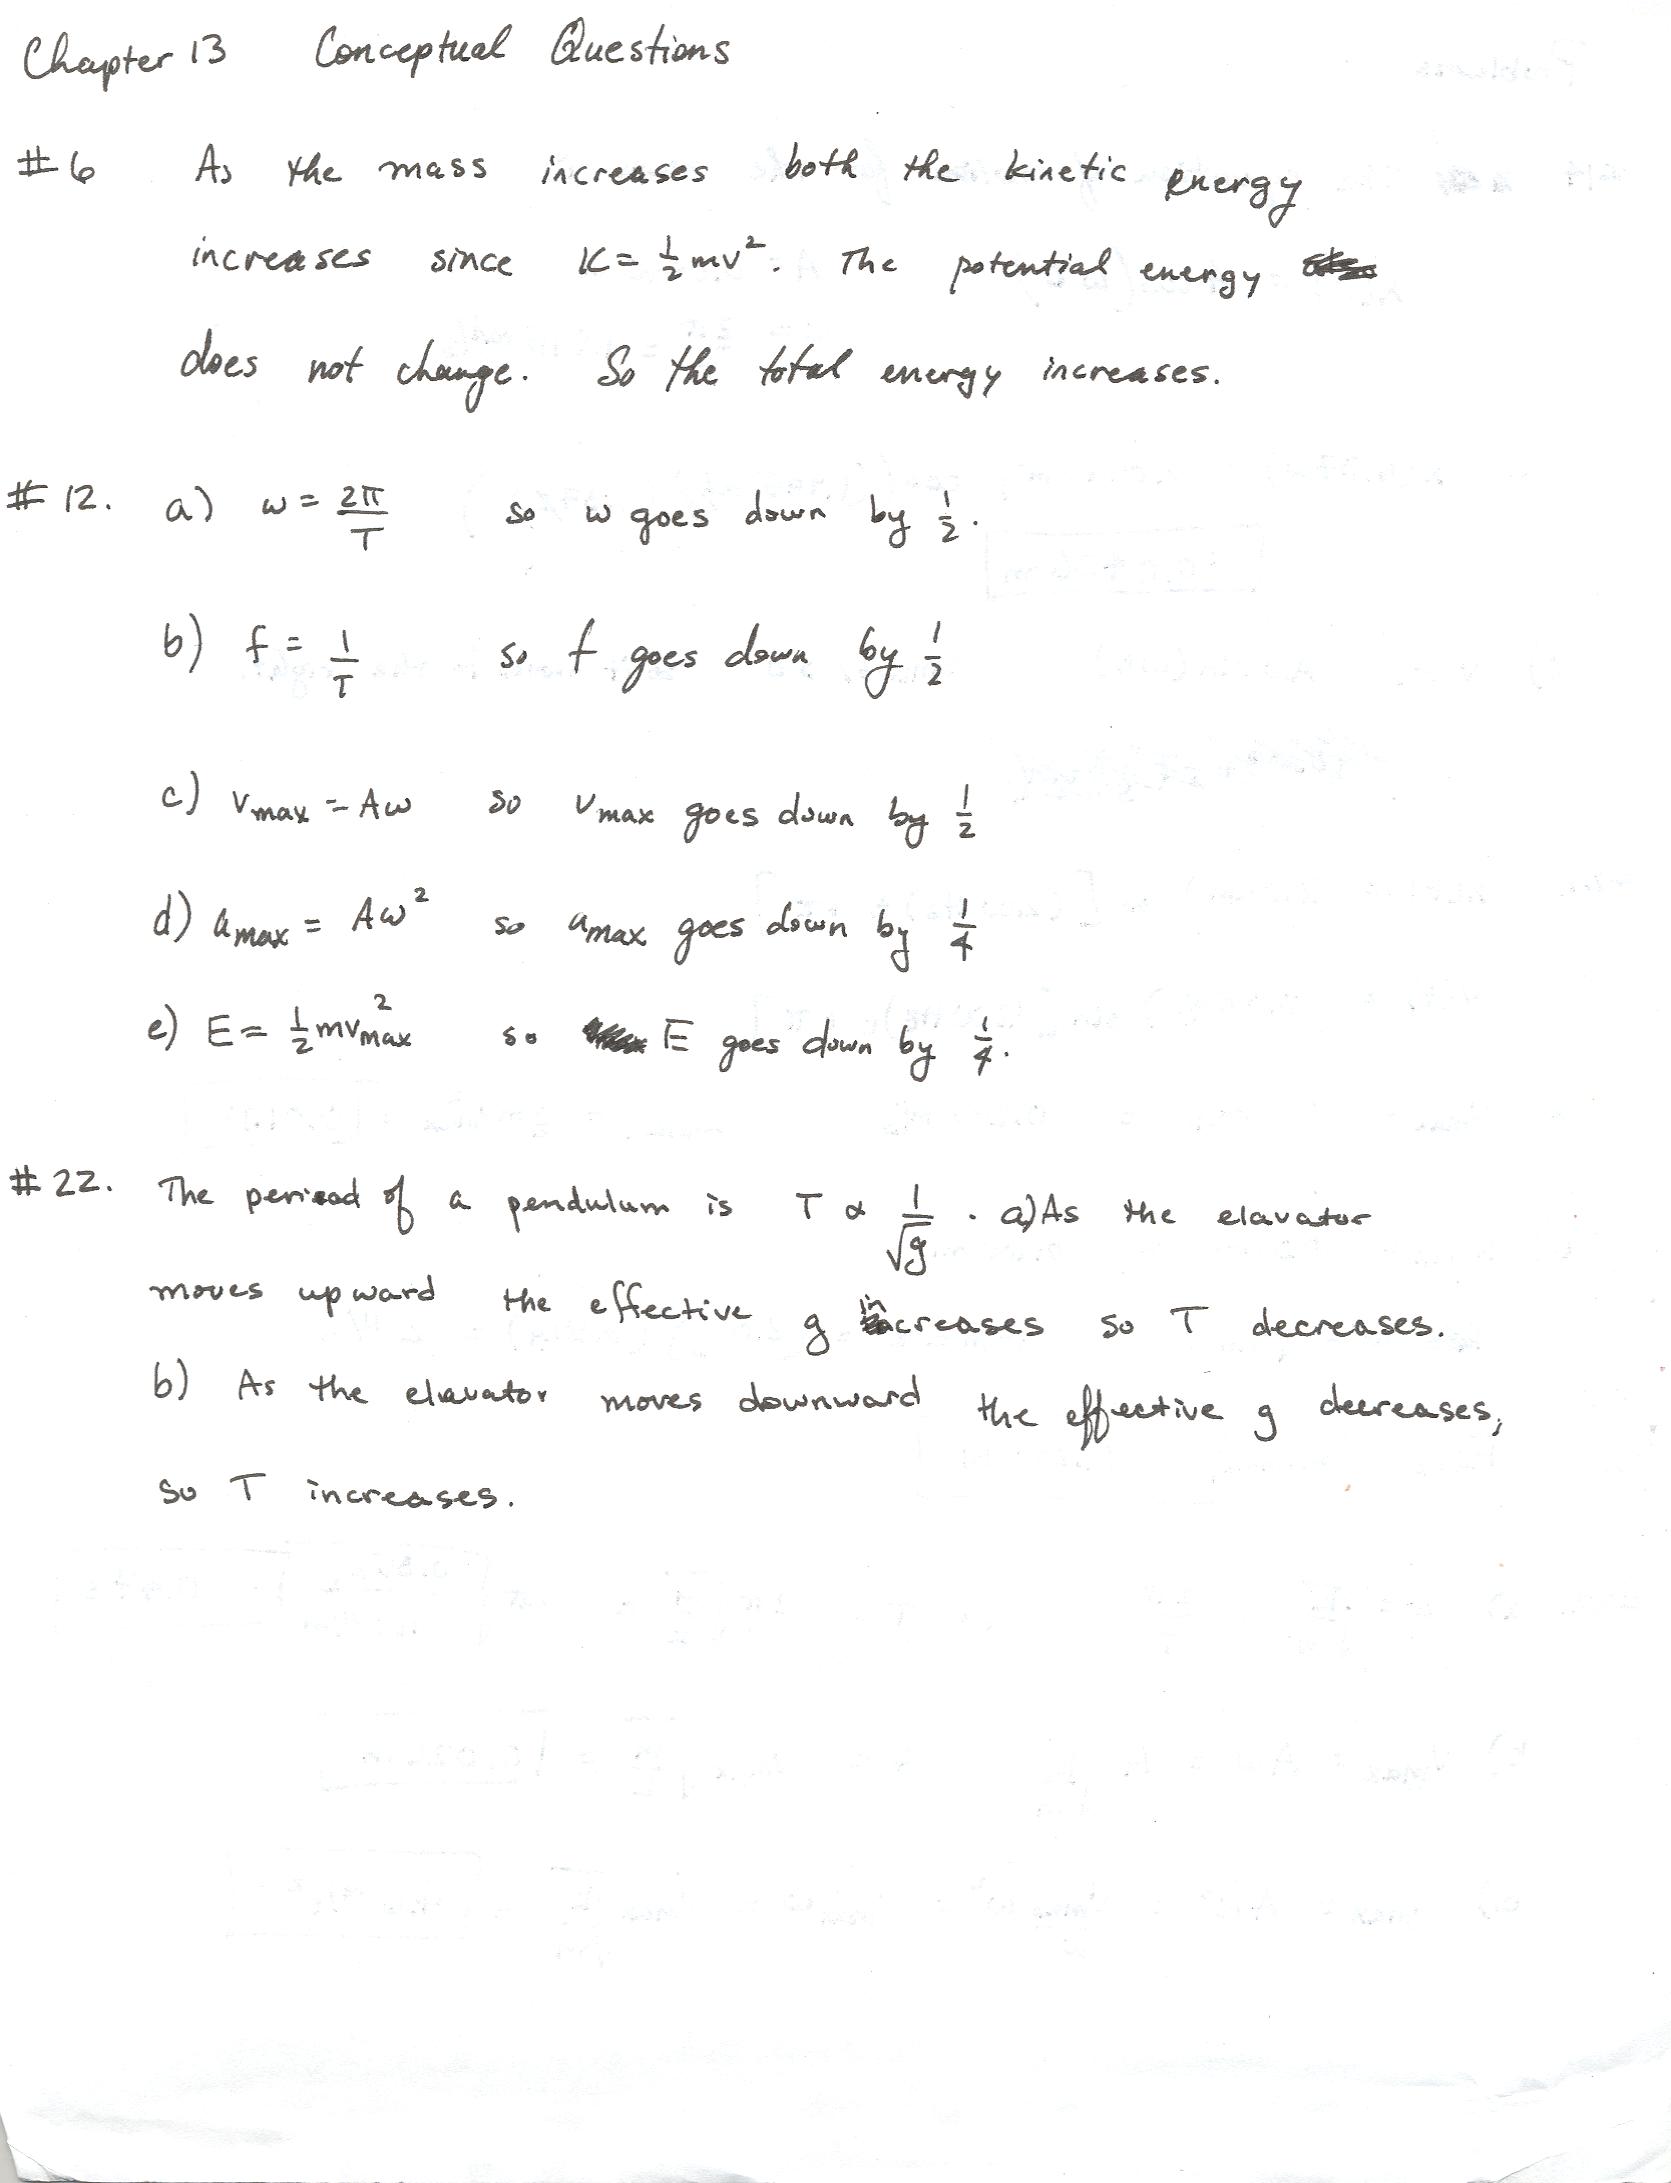 Chapter 13 Conceptual Questions
#6 As the mass increases both the kinetic energy
increases since K = ½ mv². The potential energy
does not change. So the total energy increases.
#12. a) ω = 2π/T so ω goes down by 1/2.
b) f = 1/T so f goes down by 1/2
c) vmax = Aω so vmax goes down by 1/2
d) amax = Aω² so amax goes down by 1/4
e) E = ½ mv²max so E goes down by 1/4.
#22. The period of a pendulum is T ∝ 1/√g. a) As the elavator
moves upward the effective g increases so T decreases.
b) As the elavator moves downward the effective g decreases,
so T increases.